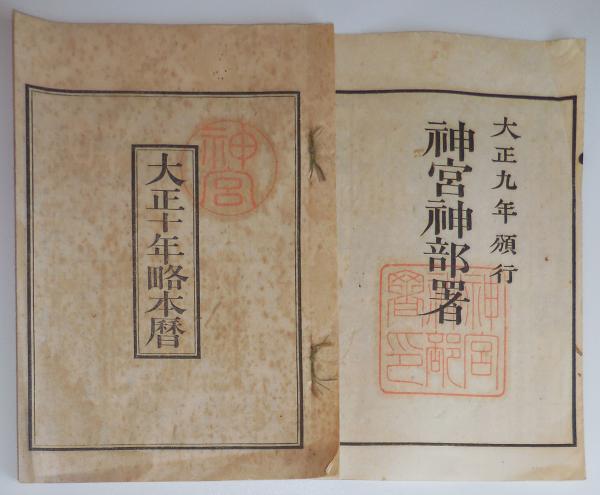 大正十年略本暦
神宮
大正九年頒行
神宮神部署
神宮神部署印